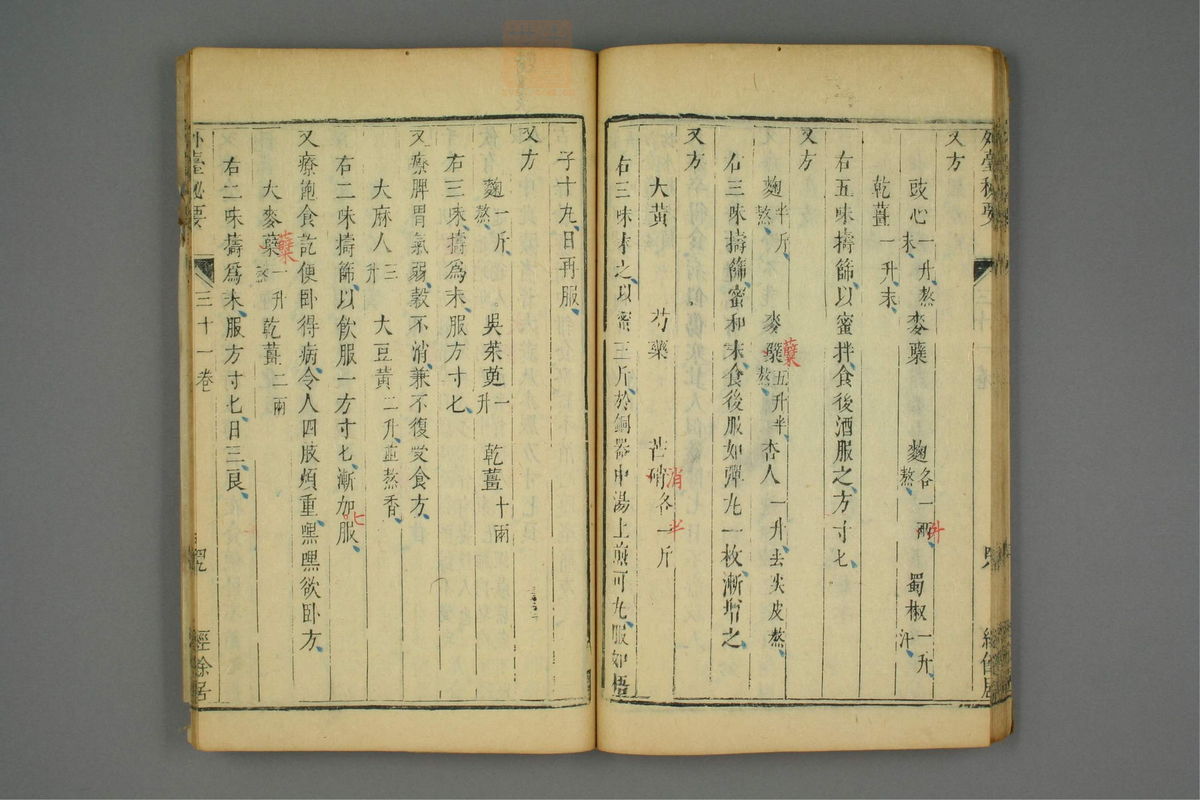 又方
豉心一升熬末麥櫱 麴各一兩熬 蜀椒一升汗
升
乾薑一升末
右五味擣篩以蜜拌食後酒服之方寸匕
又方
麴半斤熬 麥櫱五升半熬 杏人一升去尖皮熬
蘖
右三味擣篩蜜和末食後服如彈丸一枚漸增之
又方
大黃 芍藥 芒硝各一斤
消 半
右三味末之以蜜三斤於銅器中湯上煎可丸服如梧
子十九日再服
又方
麴一斤熬 吳茱萸一升 乾薑十兩
右三味擣爲末服方寸匕
又療脾胃氣弱穀不消兼不復受食方
大麻人三升 大豆黃二升並熬香
右二味擣篩以飲服一方寸匕漸加服
七
又療飽食訖便卧得病令人四肢煩重嘿嘿欲卧方
大麥櫱一升熬 乾薑二兩
蘖
右二味擣爲末服方寸匕日三良
外臺秘要 三十一卷 經餘居